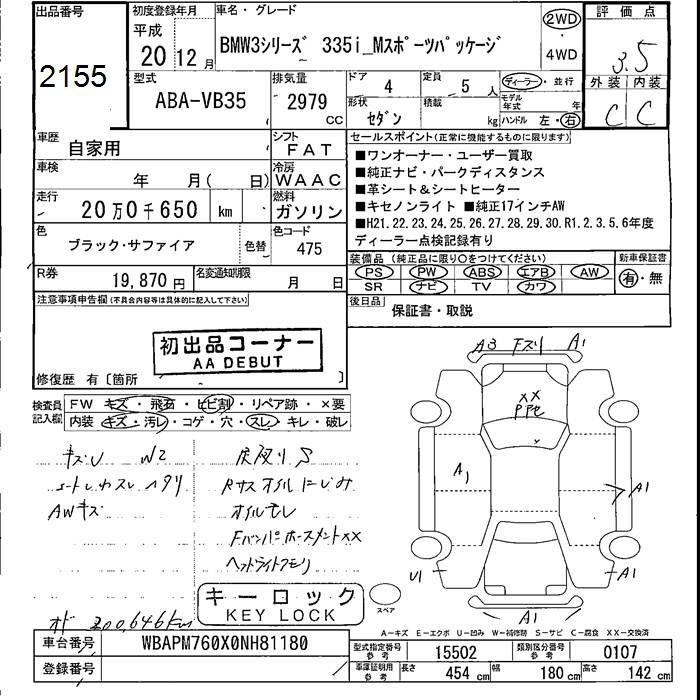 出品番号
2155
初度登録年月
平成
20 12月
車名・グレード
BMW3シリーズ 335i_Mスポーツパッケージ
2WD
・
4WD
評価点
3.5
外装 内装
C C
型式
ABA-VB35
排気量
2979 CC
ドア 4
定員 5 人
ディーラー・並行
形状
セダン
積載 kg
モデル年式 年
ハンドル 左・右
車歴
自家用
シフト
FAT
車検
年 月( 日)
冷房
WAAC
走行
20万0千650 km
燃料
ガソリン
色
ブラック・サファイア
色替
色コード
475
R券
19,870円
名変通知期限
月 日
セールスポイント(正常に機能するものに限ります)
■ワンオーナー・ユーザー買取
■純正ナビ・パークディスタンス
■革シート&シートヒーター
■キセノンライト ■純正17インチAW
■H21.22.23.24.25.26.27.28.29.30.R1.2.3.5.6年度
ディーラー点検記録有り
装備品 (純正品に限り○をつけてください)
PS PW ABS エアB AW
SR ナビ TV カワ
新車保証書
有・無
後日品
保証書・取説
注意事項申告欄(不具合内容等は具体的に記入して下さい)
初出品コーナー
AA DEBUT
修復歴 有〔箇所 〕
検査員
記入欄
FW キズ・飛石・ヒビ割・リペア跡・×要
内装 キズ・汚レ・コゲ・穴・スレ・キレ・破レ
キズU W2
AWキズ
オイルモレ
ヘッドライトクモリ
オド 200,646km
キーロック
KEY LOCK
A3 Fスリ A1
XX
A1
A1
U1
A1
A1
スペア
A-キズ E-エクボ U-凹み W-補修跡 S-サビ C-腐食 XX-交換済
車台番号
WBAPM760X0NH81180
登録番号
型式指定番号
参考
15502
類別区分番号
参考
0107
車庫証明用
参考
長さ 454 cm
幅 180 cm
高さ 142 cm